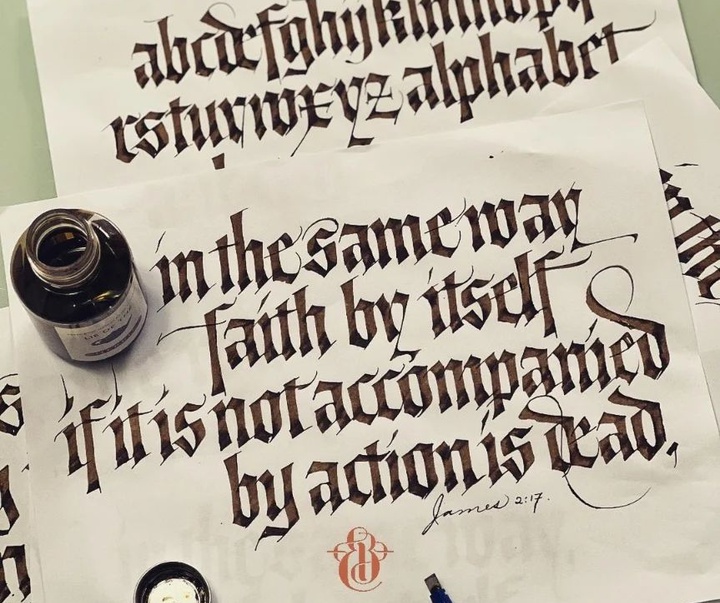 abcdefghijklmnopq
rstuvwxyz alphabet
in the same way
faith by itself
if it is not accompanied
by action is dead.
James 2:17.